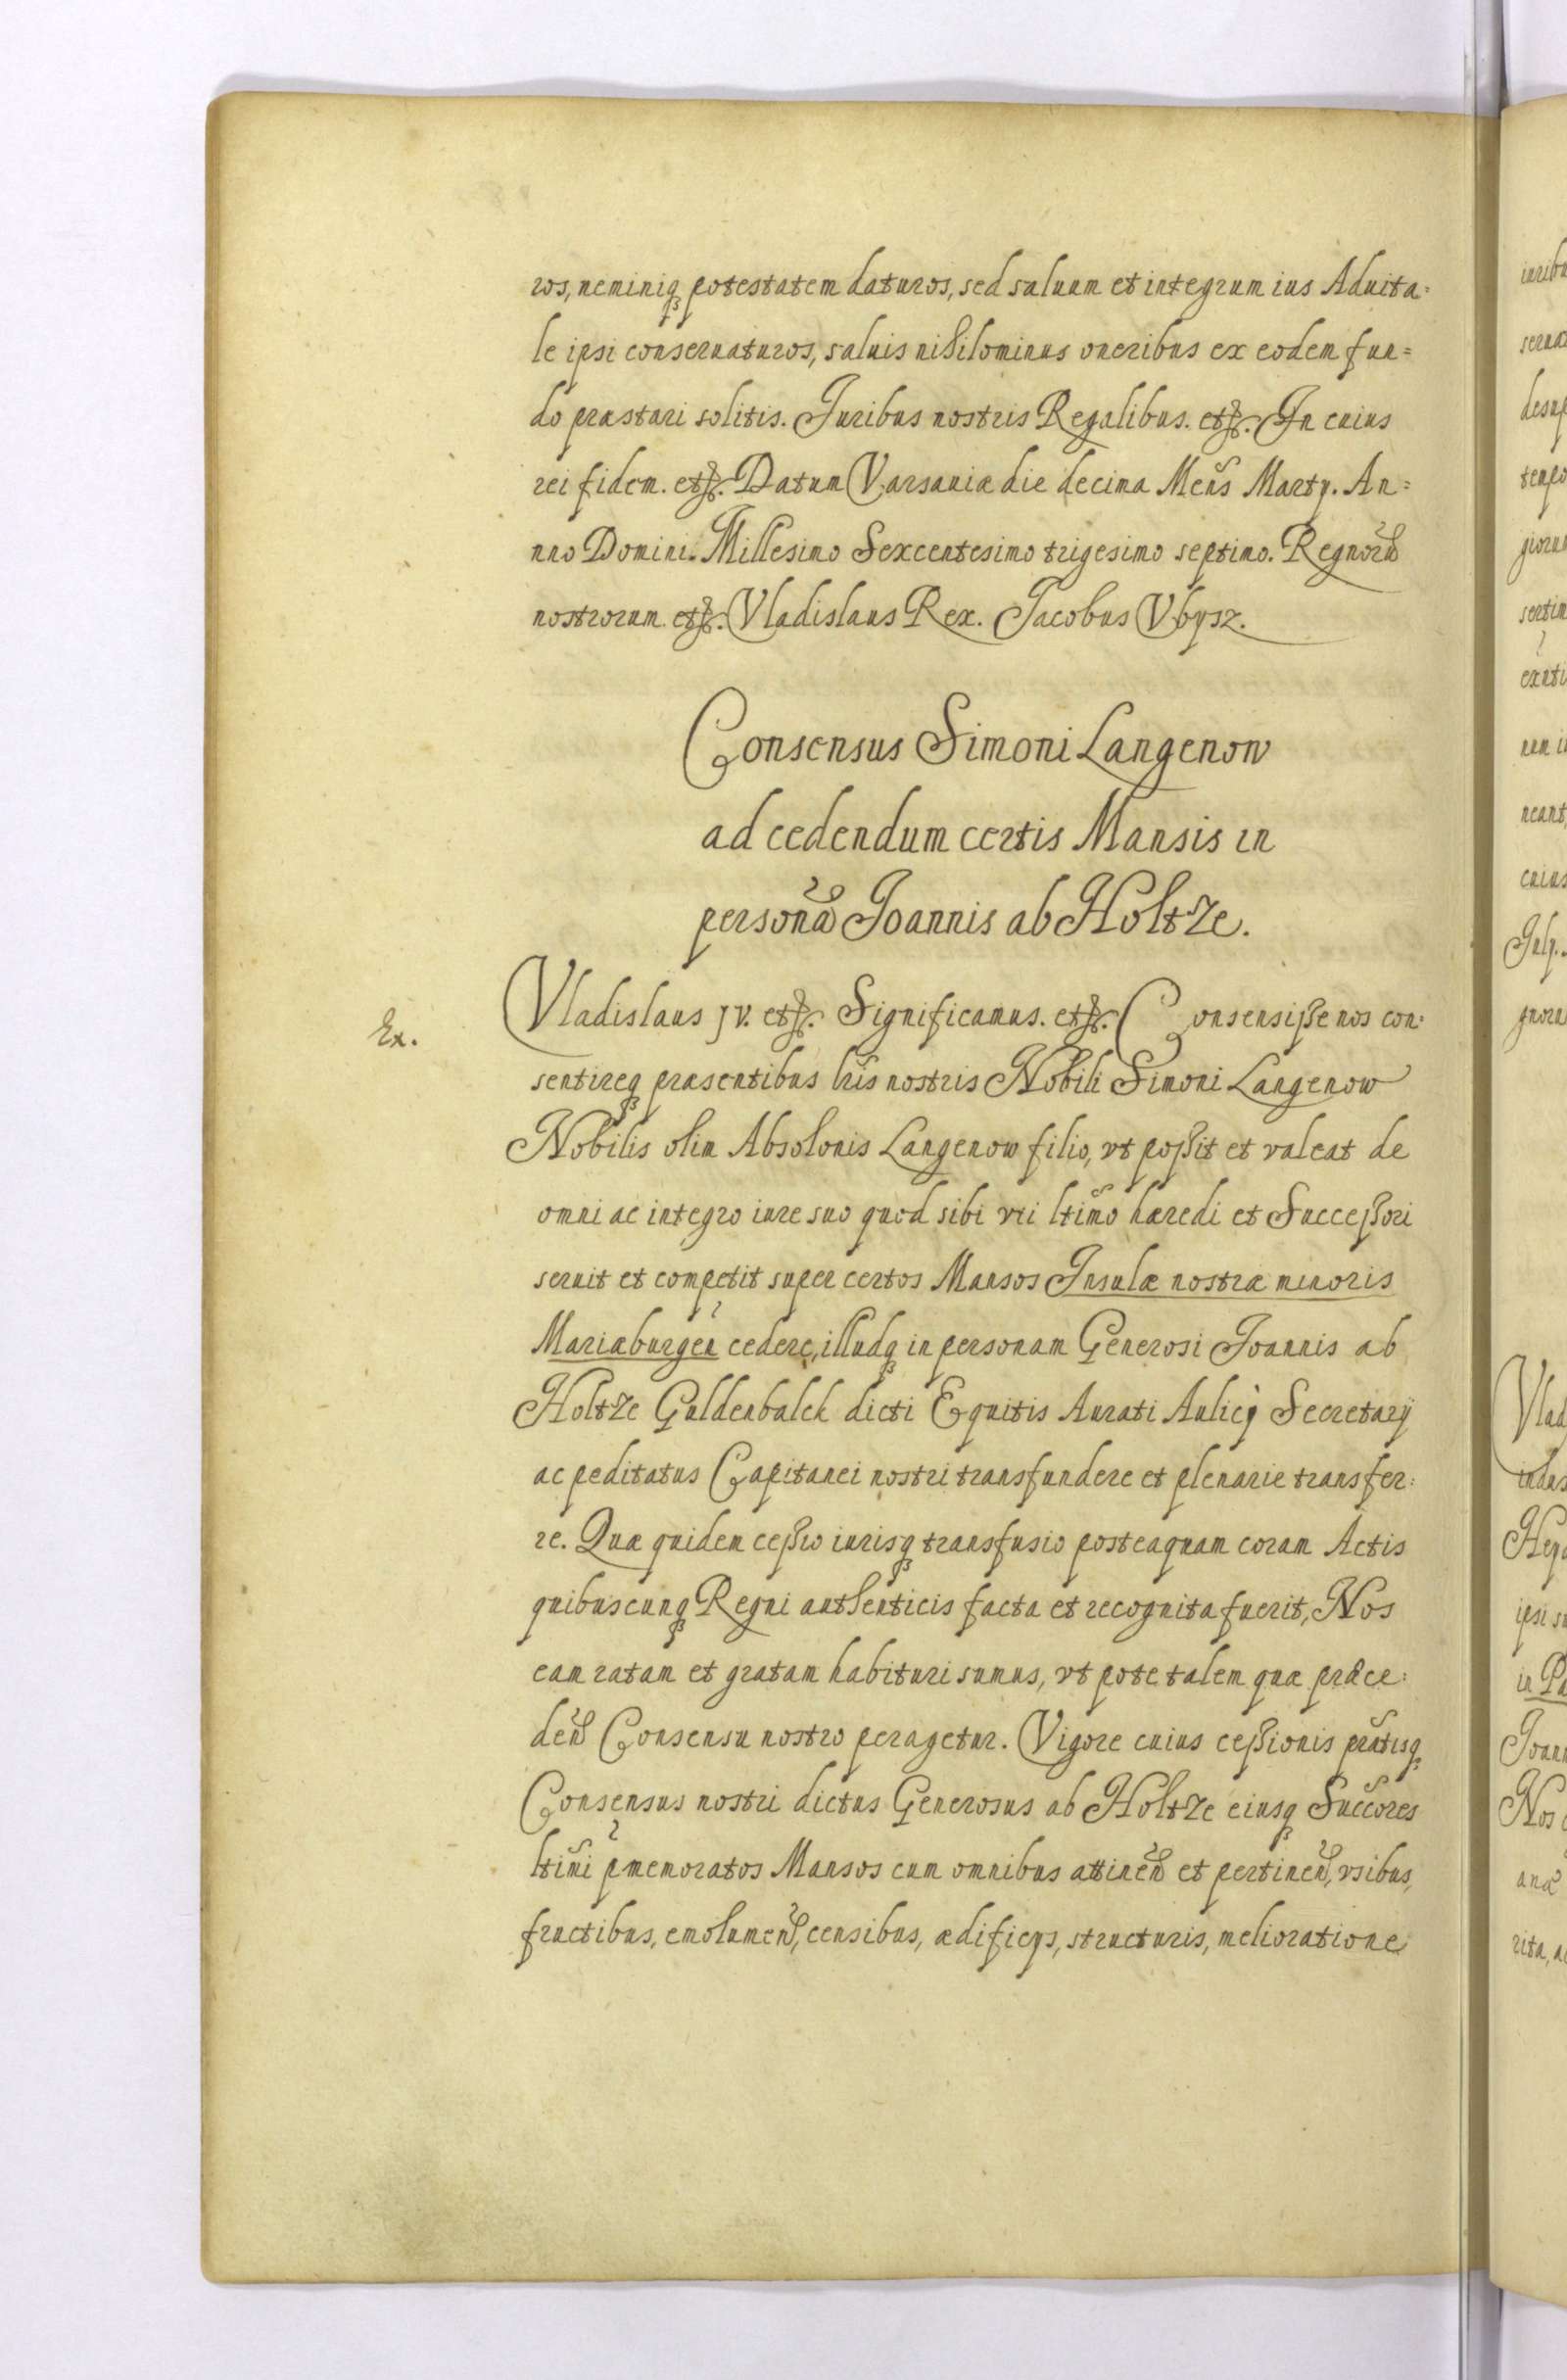 ros, neminiq₃ potestatem daturos, sed saluum et integrum ius Aduita=
le ipsi conseruaturos, saluis nihilominus oneribus ex eodem fun=
do præstari solitis. Juribus nostris Regalibus. etc. In cuius
rei fidem. etc. Datum Varsauiæ die decima Mens̃ Martÿ. An=
nno Domini. Millesimo Sexcentesimo trigesimo septimo. Regnor̃
nostrorum. etc. Vladislaus Rex. Jacobus Vbysz.
Consensus Simoni Langenow
ad cedendum certis Mansis in
personã Joannis ab Holtze.
Ex.
Vladislaus JV. etc. Significamus. etc. Consensiße nos con=
sentireq₃ præsentibus lr̃is nostris Nobili Simoni Langenow
Nobilis olim Absolonis Langenow filio, vt poßit et valeat de
omni ac integro iure suo quod sibi vti ltim̃o hæredi et Succeßori
seruit et competit super certos Mansos Insulæ nostræ minoris
Mariæburgeñ cedere, illudq₃ in personam Generosi Joannis ab
Holtze Guldenbalck dicti Equitis Aurati Aulicj Secretarÿ
ac peditatus Capitanei nostri transfundere et plenarie transfer=
re. Quæ quidem ceßio iurisq₃ transfusio posteaquam coram Actis
quibuscunq₃ Regni authenticis facta et recognita fuerit, Nos
eam ratam et gratam habituri sumus, vt pote talem quæ præce=
deñ Consensu nostro peragetur. Vigore cuius ceßionis præ̃tisq₃
Consensus nostri dictus Generosus ab Holtze eiusq₃ Succ̃ores
ltim̃i p̃memoratos Mansos cum omnibus attineñ et pertineñ, vsibus,
fructibus, emolumeñ, censibus, ædificÿs, structuris, melioratione